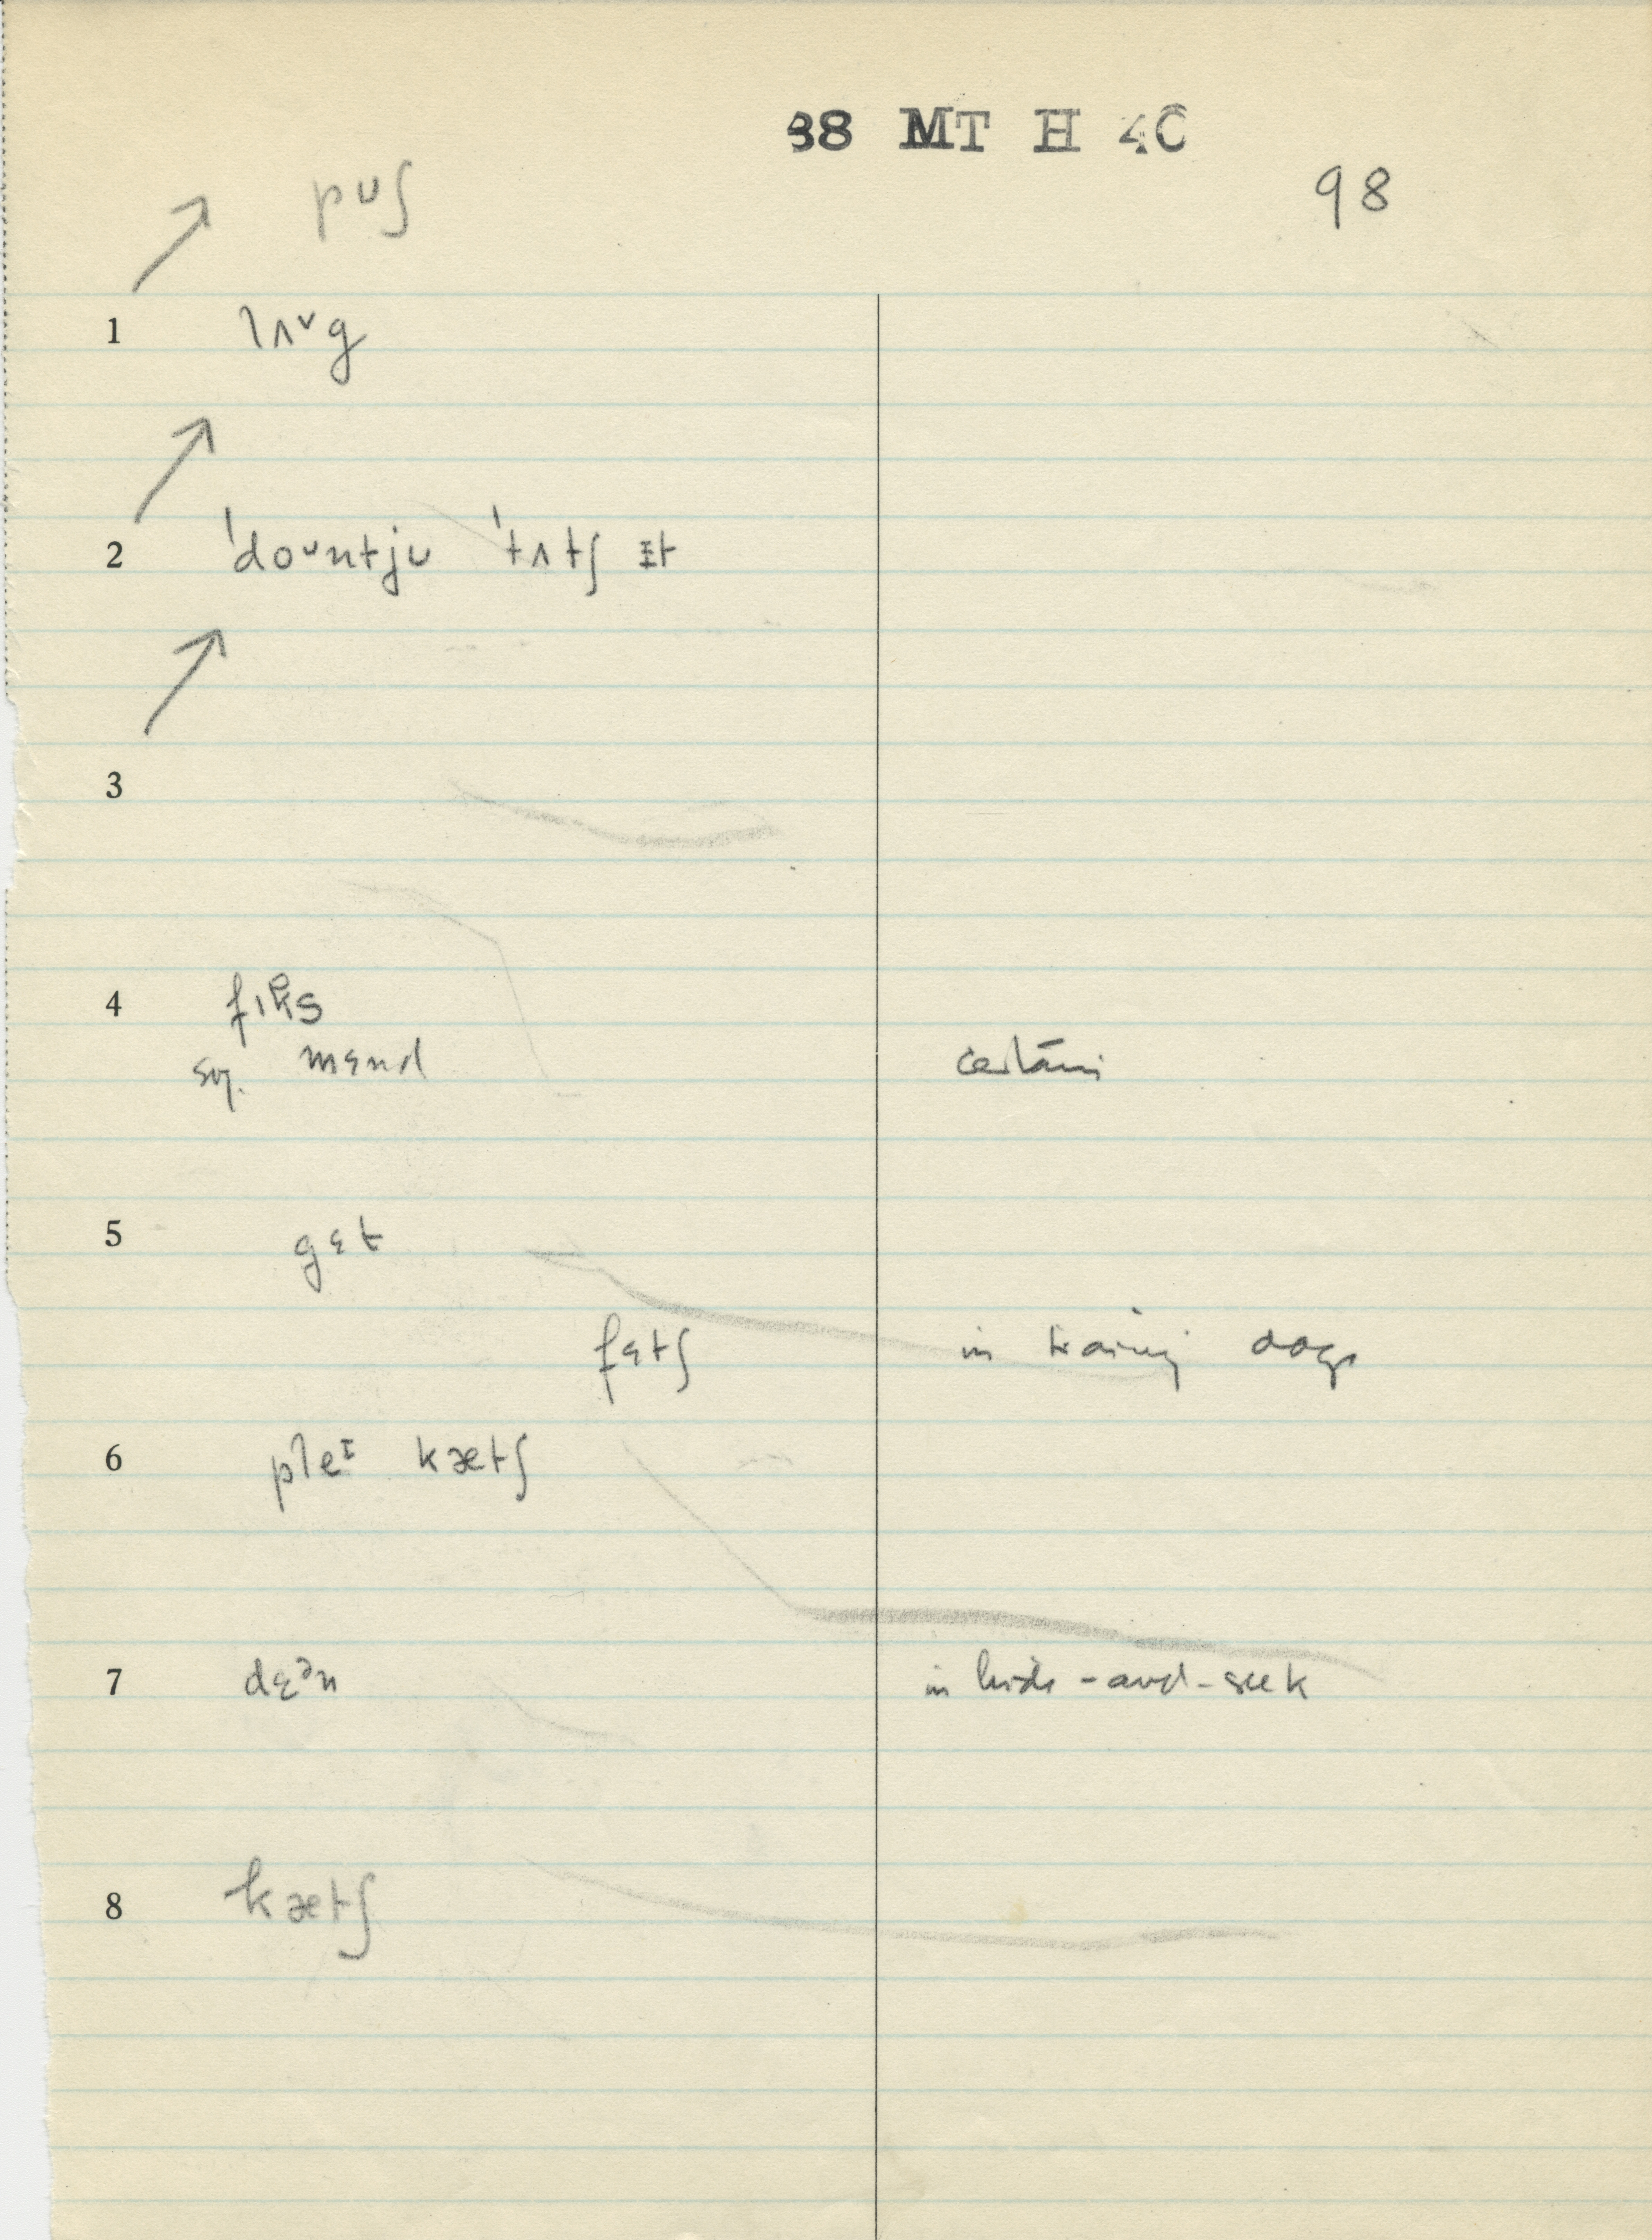 38 MT H 4C
98
pᴜʃ
1 lʌᵛg
2 ˈdoᴜntjᴜ ˈtʌtʃ ɪt
3
4 fɪks
sg. mɛnd
5 gɛt
fɛtʃ in training dogs
6 pleᶦ kætʃ
7 dɛᵊn in hide-and-seek
8 kætʃ